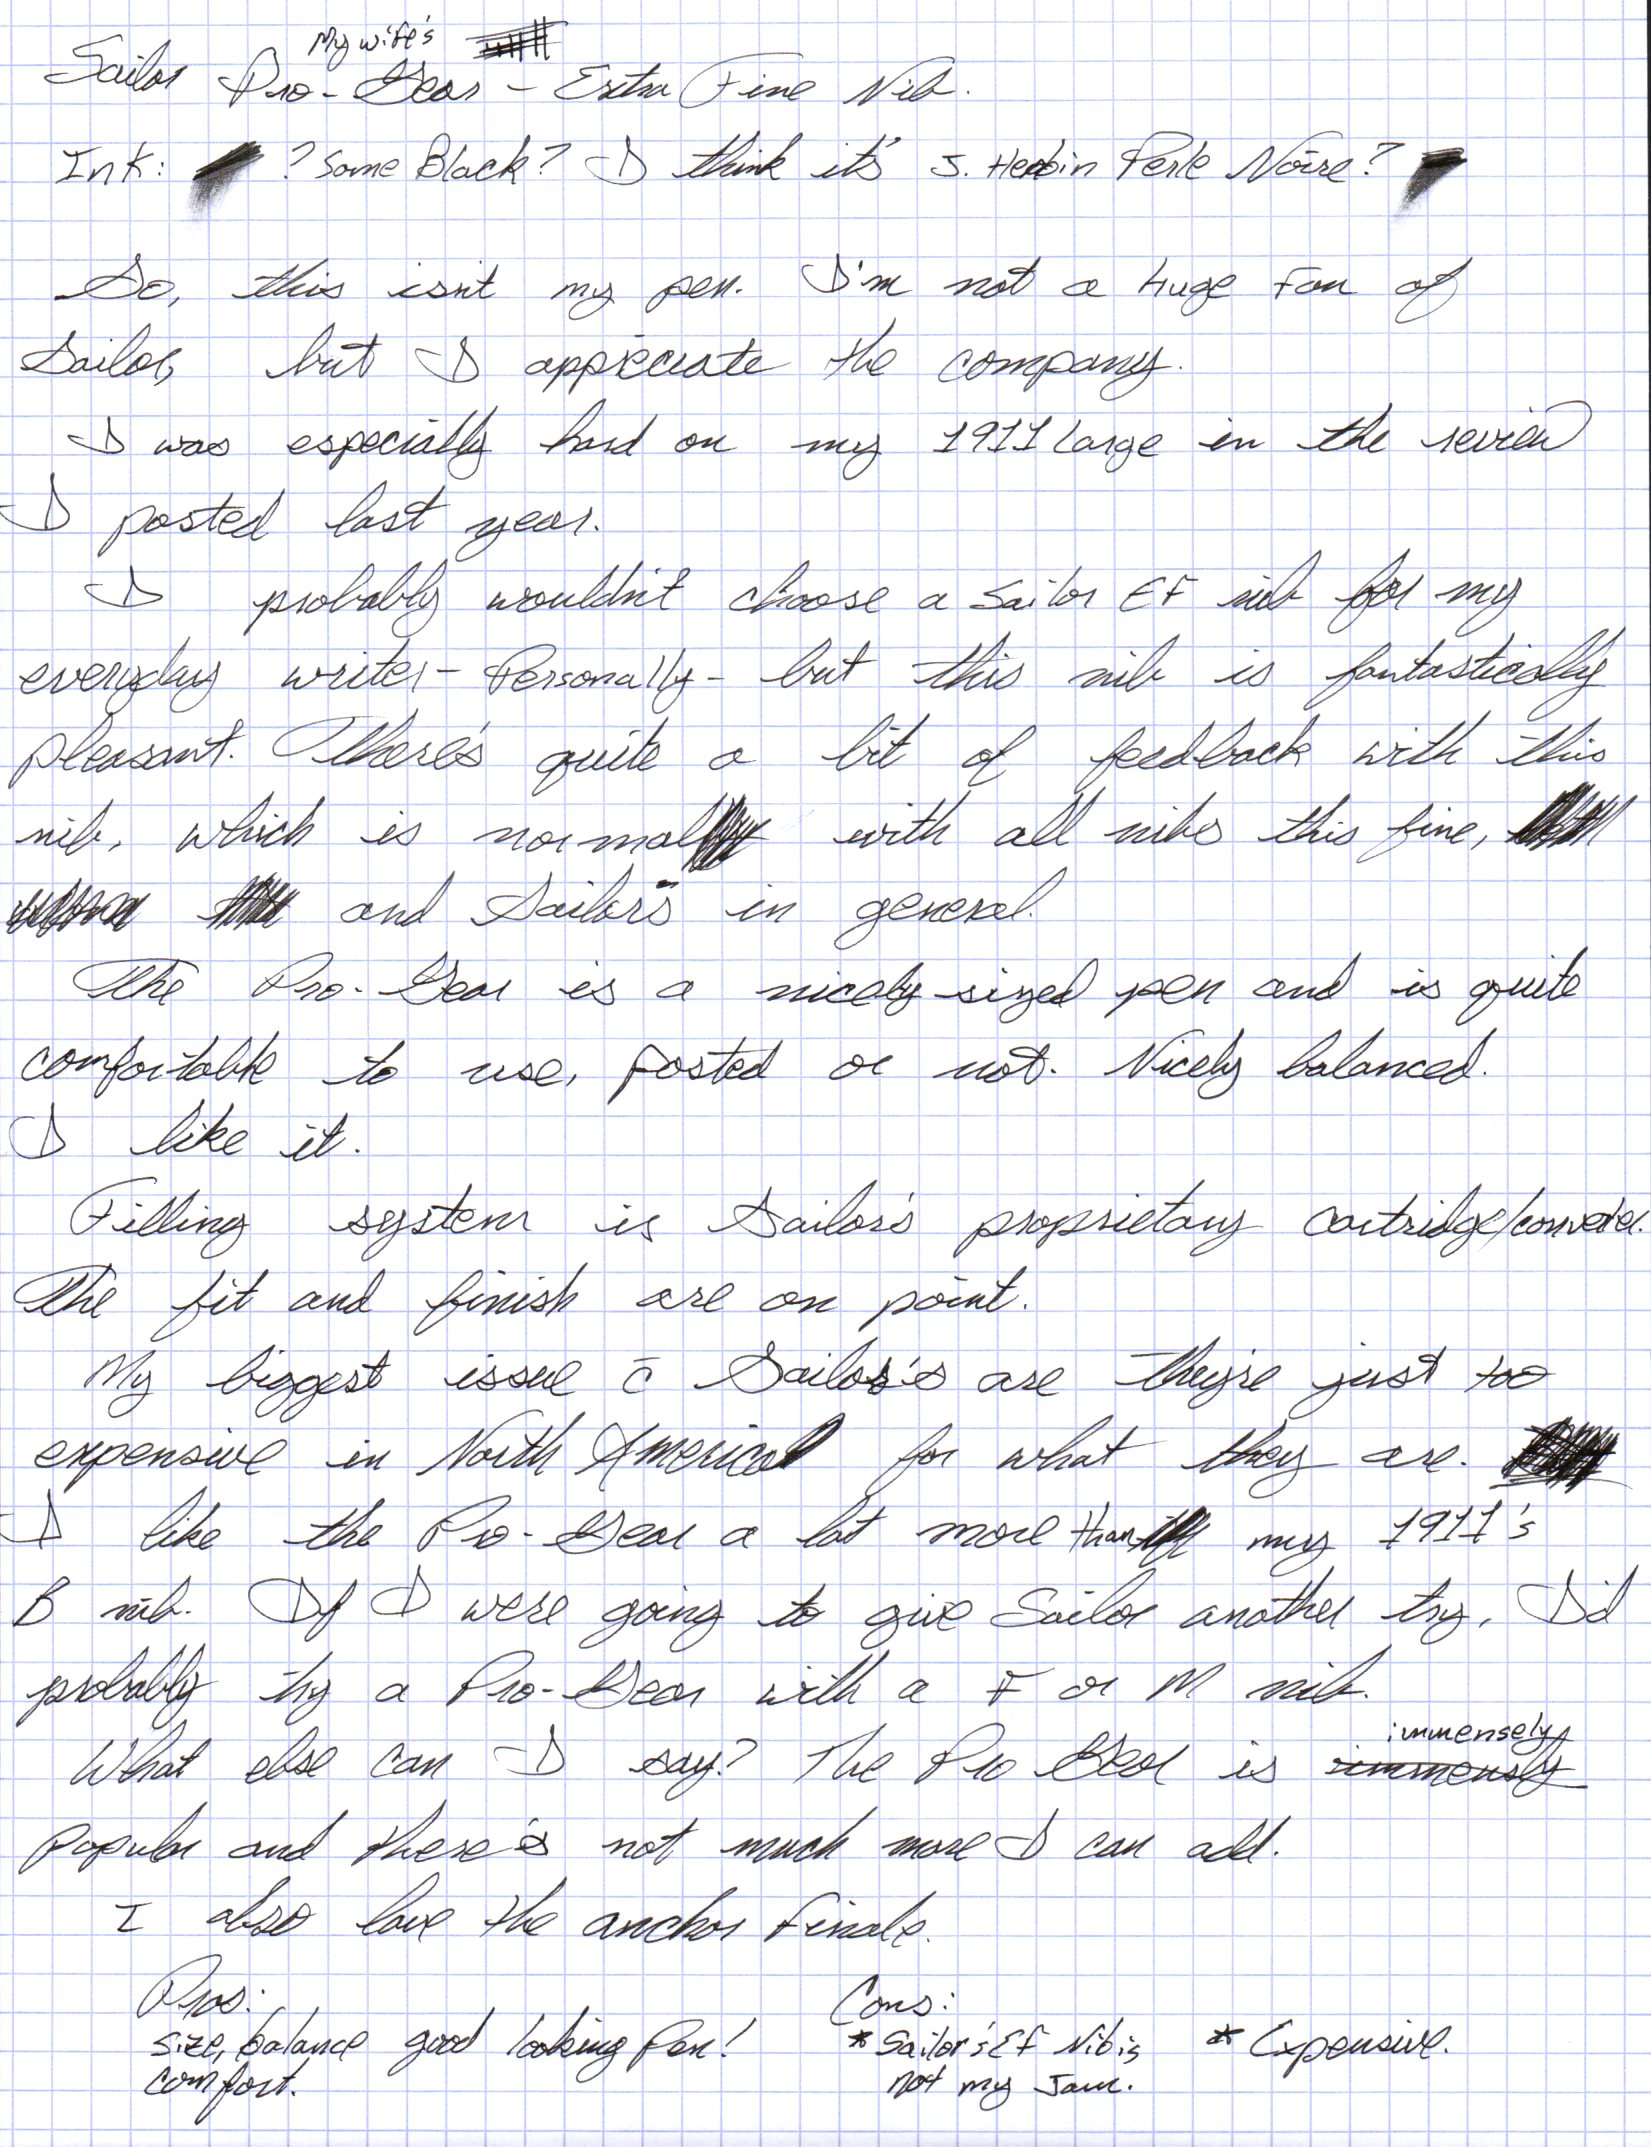 My wife's
Sailor Pro-Gear - Extra Fine Nib.
Ink: ? Some Black? I think it's J. Herbin Perle Noire?
So, this isn't my pen. I'm not a huge fan of
Sailor, but I appreciate the company.
I was especially hard on my 1911 Large in the review
I posted last year.
I probably wouldn't choose a Sailor EF nib for my
everyday writer - Personally - but this nib is fantastically
pleasant. There's quite a bit of feedback with this
nib, which is normal with all nibs this fine,
and Sailor's in general.
The Pro-Gear is a nicely-sized pen and is quite
comfortable to use, posted or not. Nicely balanced.
I like it.
Filling system is Sailor's proprietary cartridge/converter.
The fit and finish are on point.
My biggest issue c̄ Sailor's are they're just too
expensive in North America for what they are.
I like the Pro-Gear a lot more than my 1911's
B nib. If I were going to give Sailor another try, I'd
probably try a Pro-Gear with a F or M nib.
immensely
What else can I say? The Pro Gear is immensly
popular and there is not much more I can add.
I also love the anchor finale.
Pros: Cons:
size, balance good looking Pen! * Sailor's EF Nib is * Expensive.
comfort. not my Jam.